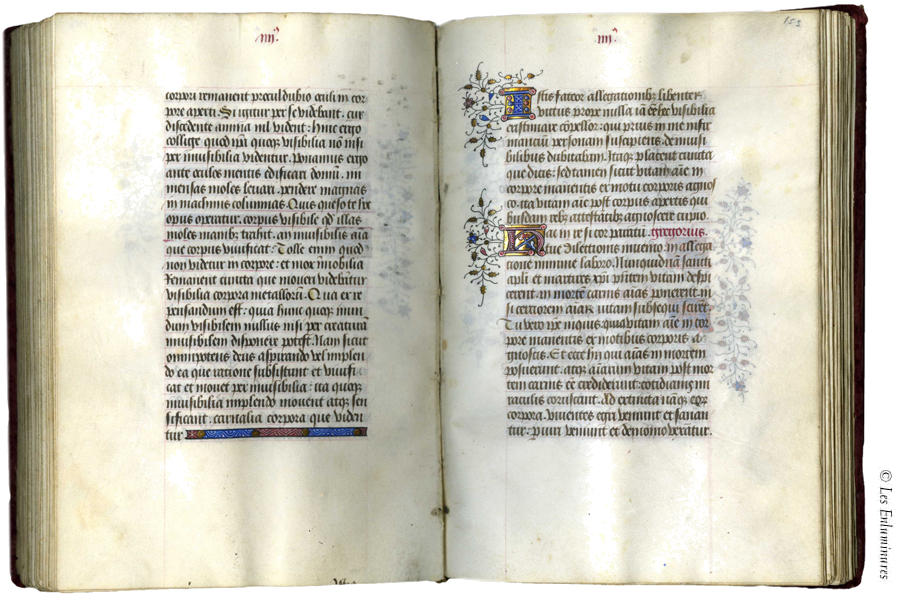 iiij
corpori remanent procul dubio oculi in cor
pore aperti. Si igitur per se videbant, cur
discedente anima nil vident: hinc ergo
collige quod ipsa quoque visibilia nō nisi
per inuisibilia videntur. Ponamus ergo
ante oculos mentis edificari domū. im
mensas moles leuari. pendere magnas
in machinis columnas. Quis queso te hoc
opus operatur. corpus visibile qd illas
moles manib; trahit. an inuisibilis aīa
que corpus viuificat: Tolle enim quod
non videtur in corpore: et mox īmobilia
Remanent cuncta que moueri videbātur
visibilia corpora metallorū. Qua ex re
pensandum est: quia hunc quoque mun
dum visibilem nullus nisi per creaturā
inuisibilem disponere potest. Nam sicut
omnipotens deus aspirando vel implen
do ea que ratione subsistunt et viuifi
cat et mouet per inuisibilia: ita quoque
inuisibilia implendo mouent atque sen
sificant. carnalia corpora que viden
tur
iiij
153
Istis fateor allegationib; libenter
victus prope nulla iā eē hec visibilia
existimare cōpellor: qui prius in me infir
mantiū personam suscipiens. de inuisi
bilibus dubitabam. Itaque placent cuncta
que dicis: sed tamen sicut vitam aīe in
corpore manentis ex motu corporis agnos
co. ita vitam aīe post corpus apertis qui
busdam reb; attestātib; agnoscere cupio
hac in re si cor paratū gregorius.
tue dilectionis inuenio. in allega
tione minime laboro. Nunquid nā sancti
apli et martires xpi p̄sentem vitam despi
cerent. in morte carnis aīas ponerent. ni
si certiorem aīarū vitam subsequi scirēt:
Tu vero ipse inquis. quia vitam aīe in cor
pore manentis ex motibus corporis a
gnoscis. Et ecce hii qui aīas in mortem
posuerunt. atque aīarum vitam post mor
tem carnis eē crediderunt: cotidianis mi
raculis coruscant. Ad extincta nāque eor
corpora. viuentes egri veniunt et sanan
tur: piuri veniunt et demonio vexātur.
© Les Enluminures